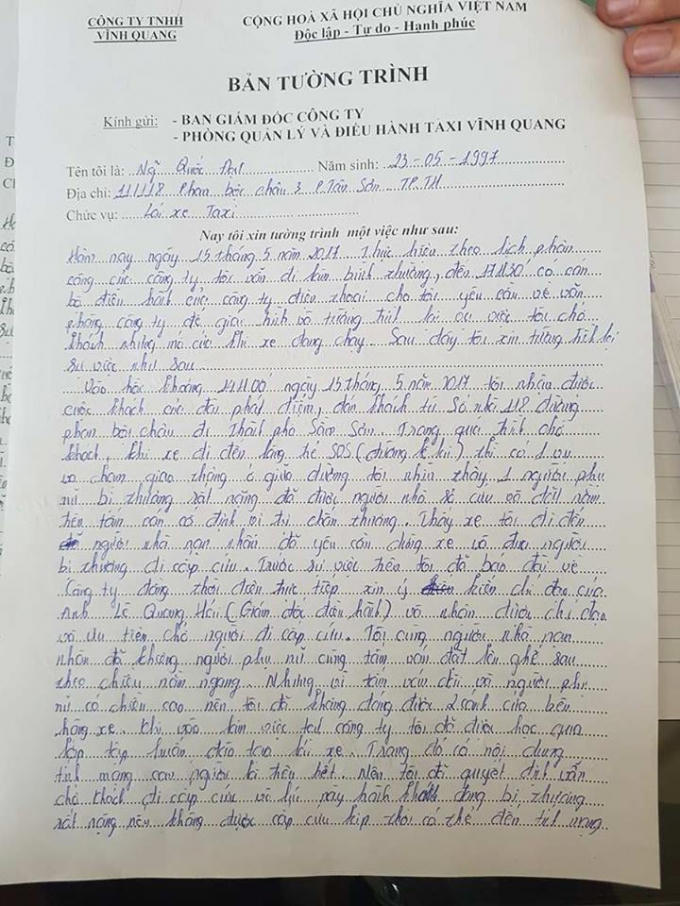 CÔNG TY TNHH
VĨNH QUANG
CỘNG HOÀ XÃ HỘI CHỦ NGHĨA VIỆT NAM
Độc lập - Tự do - Hạnh phúc
BẢN TƯỜNG TRÌNH
Kính gửi: - BAN GIÁM ĐỐC CÔNG TY
- PHÒNG QUẢN LÝ VÀ ĐIỀU HÀNH TAXI VĨNH QUANG
Tên tôi là: Ng Quốc Đạt Năm sinh: 23-05-1997
Địa chỉ: 111/118 Phan bội châu 3 P Tân Sơn TP.TH
Chức vụ: Lái xe Taxi
Nay tôi xin tường trình một việc như sau:
Hôm nay ngày 15 tháng 5 năm 2017. Thực hiện theo lịch phân
công của công ty tôi vẫn đi làm bình thường, đến 17H30 có cán
bộ điều hành của công ty điện thoại cho tôi yêu cầu về văn
phòng công ty để giải trình và tường trình lại sự việc tôi chở
khách nhưng mở cửa khi xe đang chạy. Sau đây tôi xin tường trình lại
sự việc như sau
Vào hồi khoảng 14H00 ngày 15 tháng 5 năm 2017 tôi nhận được
cuốc khách của đài phát điểm, đón khách từ Số nhà 118 đường
phan bội châu đi Thành phố Sầm Sơn. Trong quá trình chở
khách, khi xe đi đến làng trẻ SOS (đường lê lai) thì có 1 vụ
va chạm giao thông ở giữa đường tôi nhìn thấy 1 người phụ
nữ bị thương rất nặng đã được người nhà sơ cứu và đặt nằm
trên tấm ván cố định vị trí chấn thương. Thấy xe tôi đi đến
người nhà nạn nhân đã yêu cầu dừng xe và đưa người
bị thương đi cấp cứu. Trước sự việc trên tôi đã báo đài về
Công ty đồng thời điện trực tiếp xin ý kiến chỉ đạo của
Anh Lê Quang Hải (Giám đốc điều hành) và nhận được chỉ đạo
và ưu tiên chở người đi cấp cứu. Tôi cùng người nhà nạn
nhân đã khiêng người phụ nữ cùng tấm ván đặt lên ghế sau
theo chiều nằm ngang. Nhưng vì tấm ván dài và người phụ
nữ có chiều cao nên tôi đã không đóng được 2 cánh cửa bên
hông xe. Khi vào làm việc tại công ty tôi đã được học qua
lớp tập huấn đào tạo lái xe. Trong đó có nội dung
tính mạng con người là trên hết. Nên tôi đã quyết định vẫn
chở khách đi cấp cứu vì lúc này hành khách đang bị thương
rất nặng nếu không được cấp cứu kịp thời có thể đến tính mạng